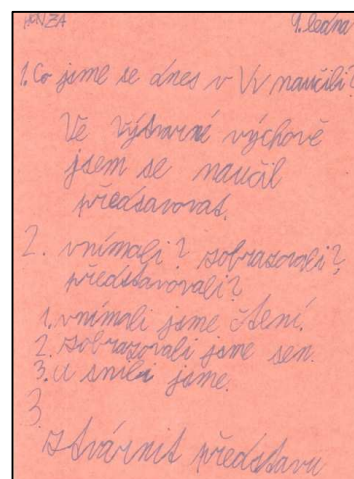 HONZA 9. ledna
1. Co jsme se dnes v Vv naučili?
Ve výtvarné výchově
jsem se naučil
představovat.
2. vnímali? zobrazovali?
představovali?
1. vnímali jsme čtení.
2. zobrazovali jsme sen.
3. a snili jsme.
3.
ztvárnit představu